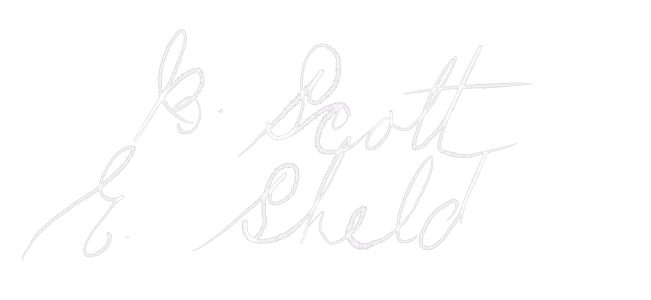 B. Scott
E. Sheld